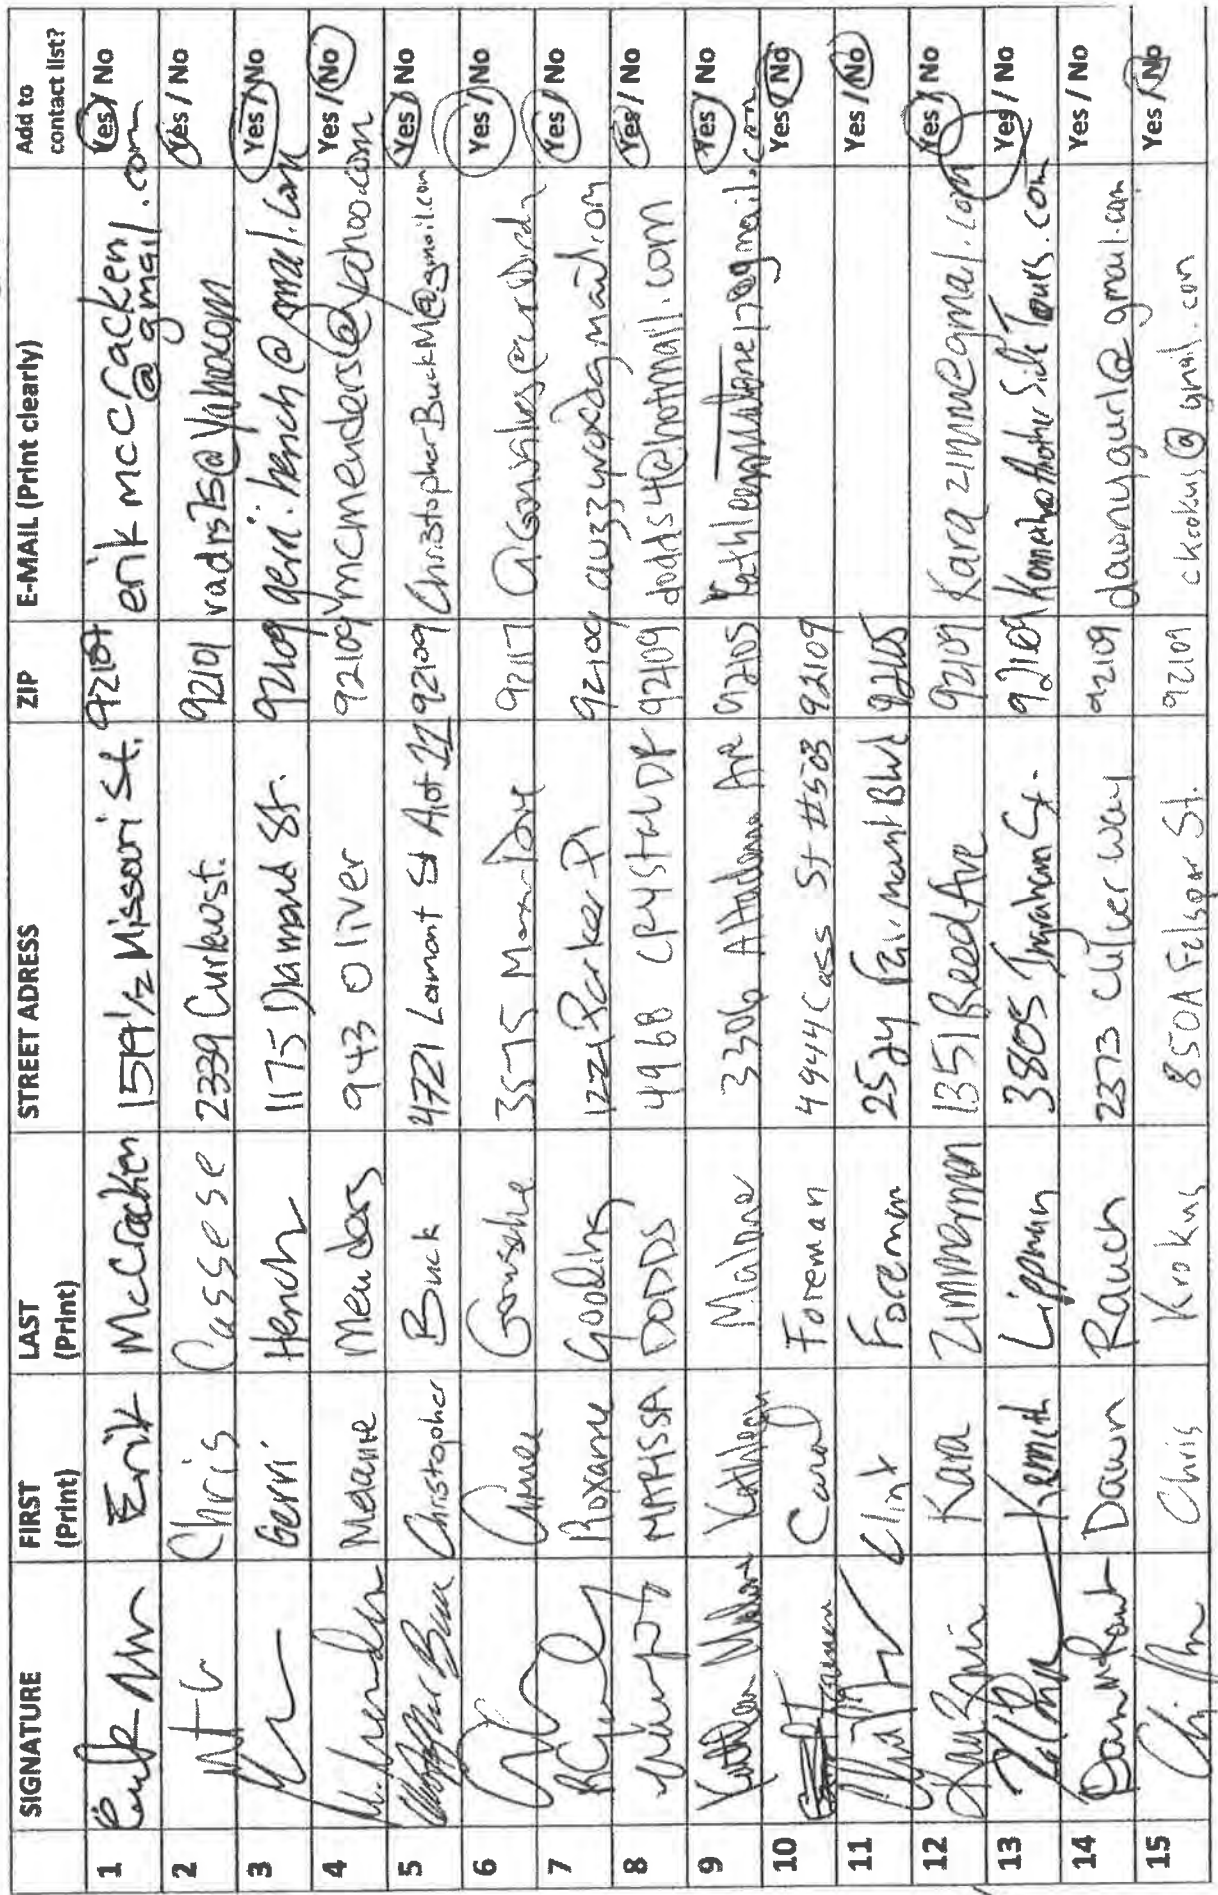 SIGNATURE FIRST (Print) LAST (Print) STREET ADRESS ZIP E-MAIL (Print clearly) Add to contact list?
1 Erik McCracken 1519 1/2 Missouri St. 92109 erikmccracken@gmail.com Yes / No
2 Chris Cassese 2339 92101 Yes / No
3 Gerri Hench 1175 Diamond St. 92109 gerri.hench@gmail.com Yes / No
4 Melanie Menders 943 Oliver 92109 mcmenders@yahoo.com Yes / No
5 Christopher Buck 4721 Lamont St Apt 22 92109 ChristopherBuckM@gmail.com Yes / No
6 3575 92117 Yes / No
7 Roxanne Gooding 1221 Parker Pl 92109 Yes / No
8 MARISSA DODDS 4968 CRYSTAL DR 92109 dodds4@hotmail.com Yes / No
9 Kathleen Malone 3306 Altadena Ave 92105 kathleenmalone17@gmail.com Yes / No
10 Carol Foreman 4944 Cass St #503 92109 Yes / No
11 Clint Foreman 2524 Fairmount Blvd 92105 Yes / No
12 Kara Zimmerman 1351 Reed Ave 92109 Yes / No
13 Kenneth Lippman 3805 Ingraham St. 92109 Yes / No
14 Dawn Rauch 2373 92109 dawnygurl@gmail.com Yes / No
15 Chris Krokus 850A Felspar St. 92109 ckrokus@gmail.com Yes / No